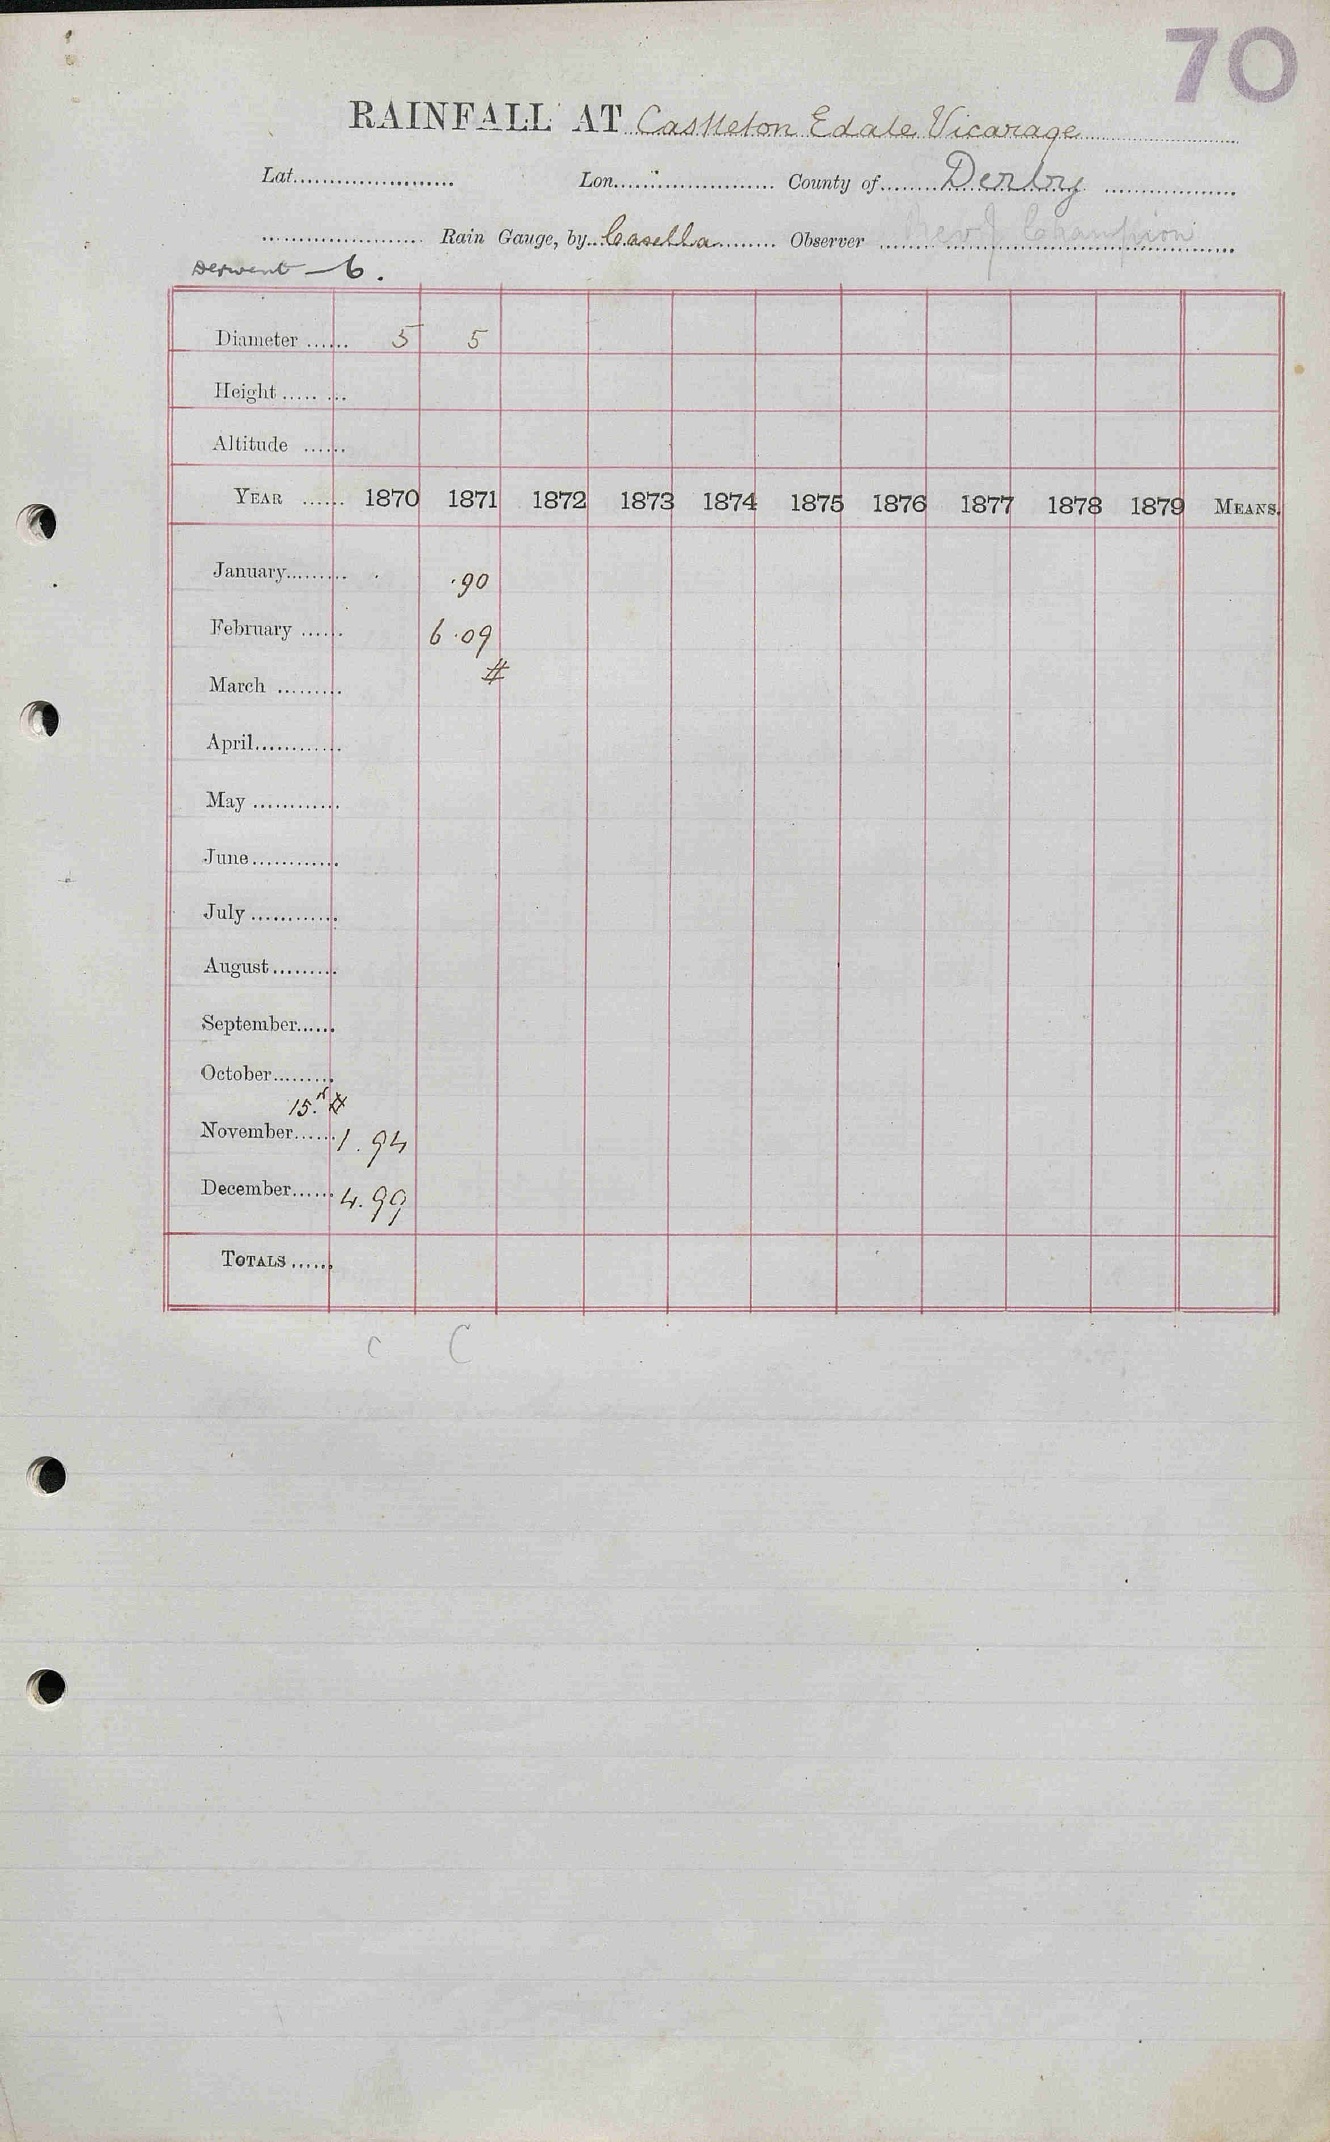 70
RAINFALL AT Castleton Edale Vicarage
Lat. Lon. County of Derby
Rain Gauge, by Casella Observer Rev J Champion
Derwent — 6.
Diameter 5 5
Height
Altitude
YEAR 1870 1871 1872 1873 1874 1875 1876 1877 1878 1879 MEANS.
January ·90
February 6·09
March #
April
May
June
July
August
September
October
15. #
November 1.94
December 4.99
TOTALS
C C